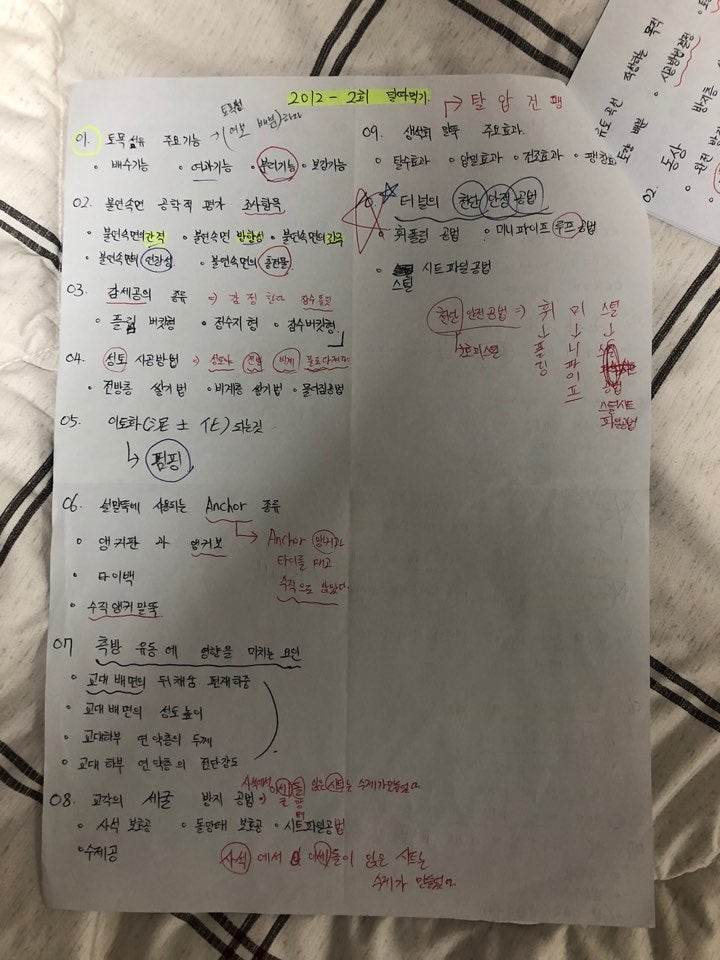 2012 - 2회 덜따먹기.
01. 토목섬유 주요기능 →
• 배수기능 • 여과기능 • 분리기능 • 보강기능
02. 불연속면 공학적 평가 조사항목
• 불연속면의 간격 • 불연속면 방향성 • 불연속면의 간극
• 불연속면의 연장성 • 불연속면의 충전물
03. 감세공의 종류 ⇒
• 플립 버킷형 • 정수지형 • 잠수버킷형
04. 성토 시공방법 ⇒ 성토사 전박 비계
• 전방층 쌓기법 • 비계층 쌓기법 • 물다짐공법
05. 이토화(泥土化) 되는것
↳ 펌핑
06. 널말뚝에 사용되는 Anchor 종류
• 앵커판 과 앵커보
• 타이백
• 수직앵커말뚝
Anchor 앵커가
타이를 매고
수직으로 앉았다.
07 측방 유동에 영향을 미치는 요인
• 교대 배면의 뒤채움 편재하중
• 교대 배면의 성토높이
• 교대하부 연약층의 두께
• 교대 하부 연약층의 전단강도
08. 교각의 세굴 방지 공법 ⇒
• 사석 보호공 • 돌망태 보호공 • 시트파일공법
• 수제공
사석에서 세들이 앉은 시트는
수제가 만들었다.
09. 생석회 말뚝 주요효과.
→ 탈 압 건 팽
• 탈수효과 • 압밀효과 • 건조효과 • 팽창효과
터널의 천단 안정 공법
• 훠폴링 공법 • 미니파이프 루프공법
• 스틸 시트파일공법
천단 안정공법 ⇒ 훠 미 스틸
↓ ↓ ↓
폴링
니파이프
스틸시트
파일공법
유도 곡선
동상
02.